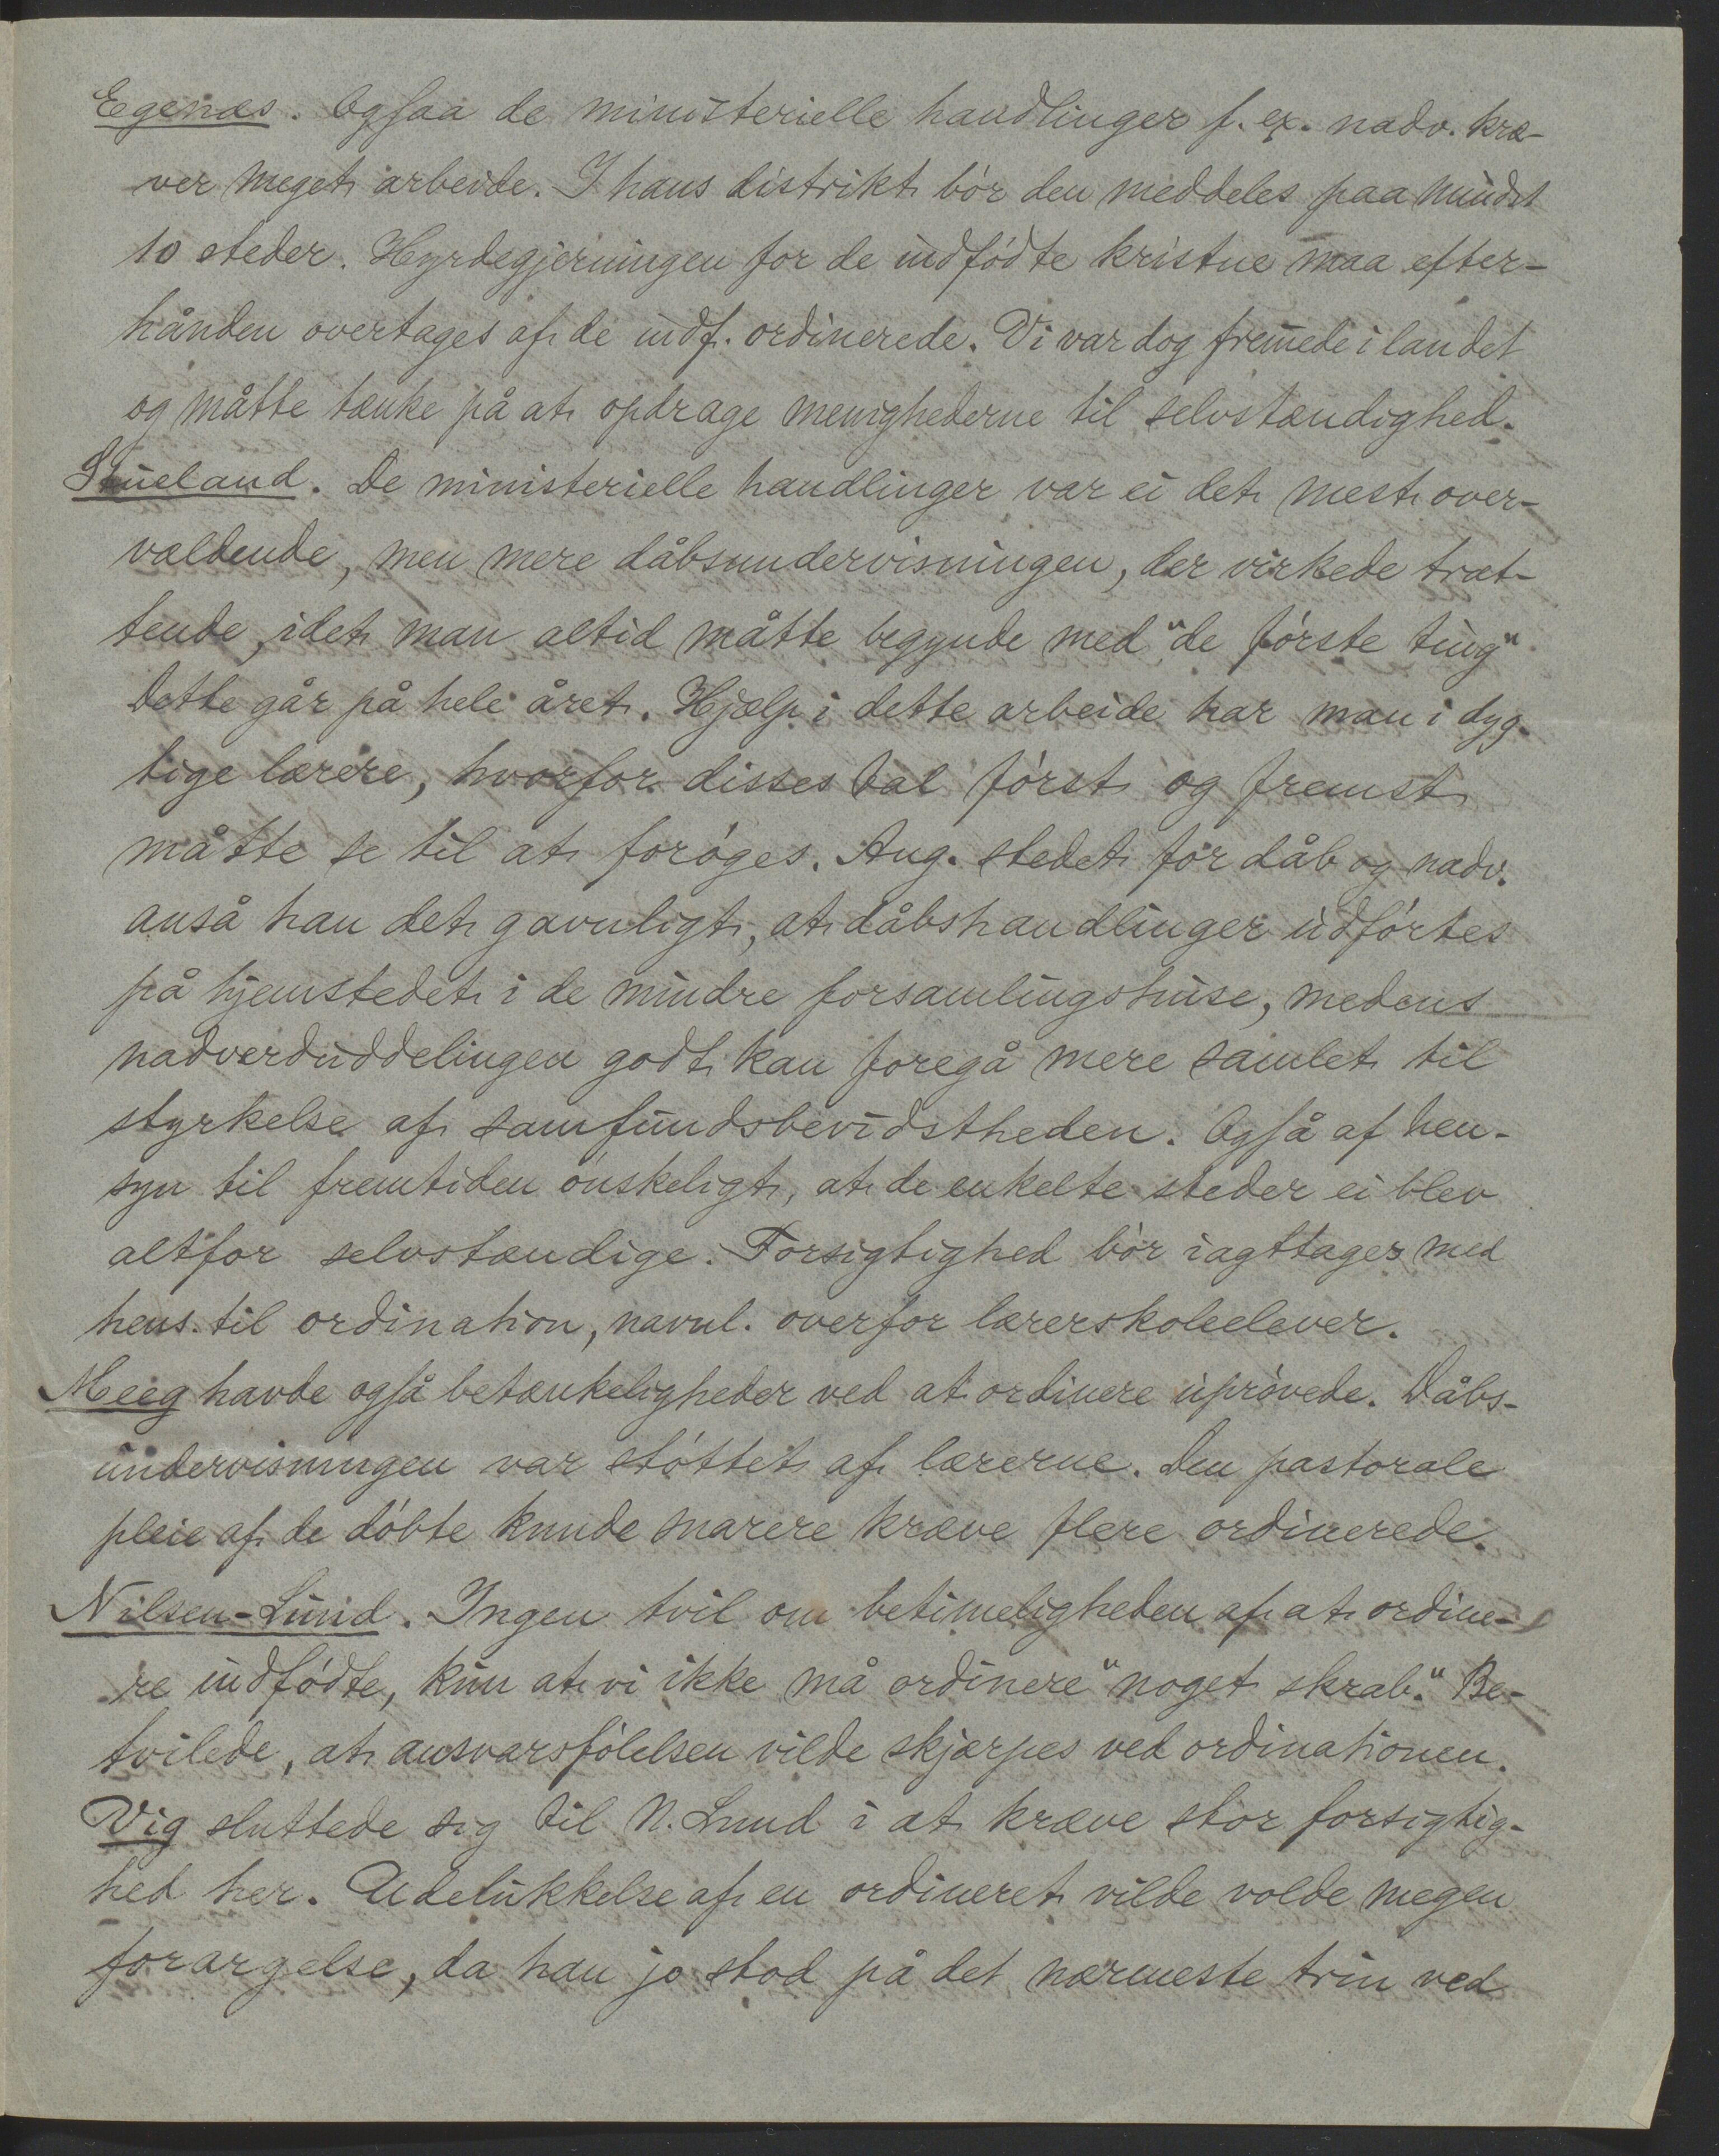 Egenæs. Ogsaa de ministerielle handlinger f. ex. nadv. kræ-
ver meget arbeide. I hans distrikt bör den meddeles paa mindst
10 steder. Hyrdegjerningen for de indfödte kristne maa efter-
hånden overtages af de indf. ordinerede. Vi var dog fremede i landet
og måtte tænke på at opdrage menighederne til selvstændighed.
Stueland. De ministerielle handlinger var ei det mest over-
vældende, men mere dåbsundervisningen, der virkede træt-
tende, idet man altid måtte begynde med "de förste ting"
Dette går på hele året. Hjælp i dette arbeide har man i dyg-
tige lærere, hvorfor disses tal först og fremst
måtte se til at foröges. Ang. stedet for dåb og nadv.
anså han det gavnligt, at dåbshandlinger udförtes
på hjemstedet i de mindre forsamlingshuse, medens
nadverduddelingen godt kan foregå mere samlet til
styrkelse af samfundsbevidstheden. Også af hen-
syn til fremtiden önskeligt, at de enkelte steder ei blev
altfor selvstændige. Forsigtighed bör iagttages med
hens. til ordination, navnl. overfor lærerskoleelever.
Meeg havde også betænkeligheder ved at ordinere uprövede. Dåbs-
undervisningen var stöttet af lærerne. Den pastorale
pleie af de döbte kunde snarere kræve flere ordinerede.
Nilsen-Lund. Ingen tvil om betimeligheden af at ordine-
re indfödte, kun at vi ikke må ordinere "noget skrab." Be-
tvilede, at ansvarsfölelsen vilde skjærpes ved ordinationen.
Vig sluttede sig til N. Lund i at kræve stor forsigtig-
hed her. Udelukkelse af en ordineret vilde volde megen
forargelse, da han jo stod på det nærmeste trin ved